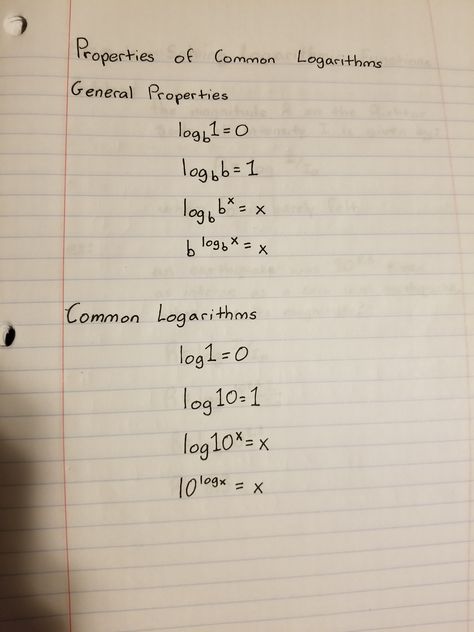 Properties of Common Logarithms
General Properties
log_b 1 = 0
log_b b = 1
log_b b^x = x
b^(log_b x) = x
Common Logarithms
log 1 = 0
log 10 = 1
log 10^x = x
10^(log x) = x